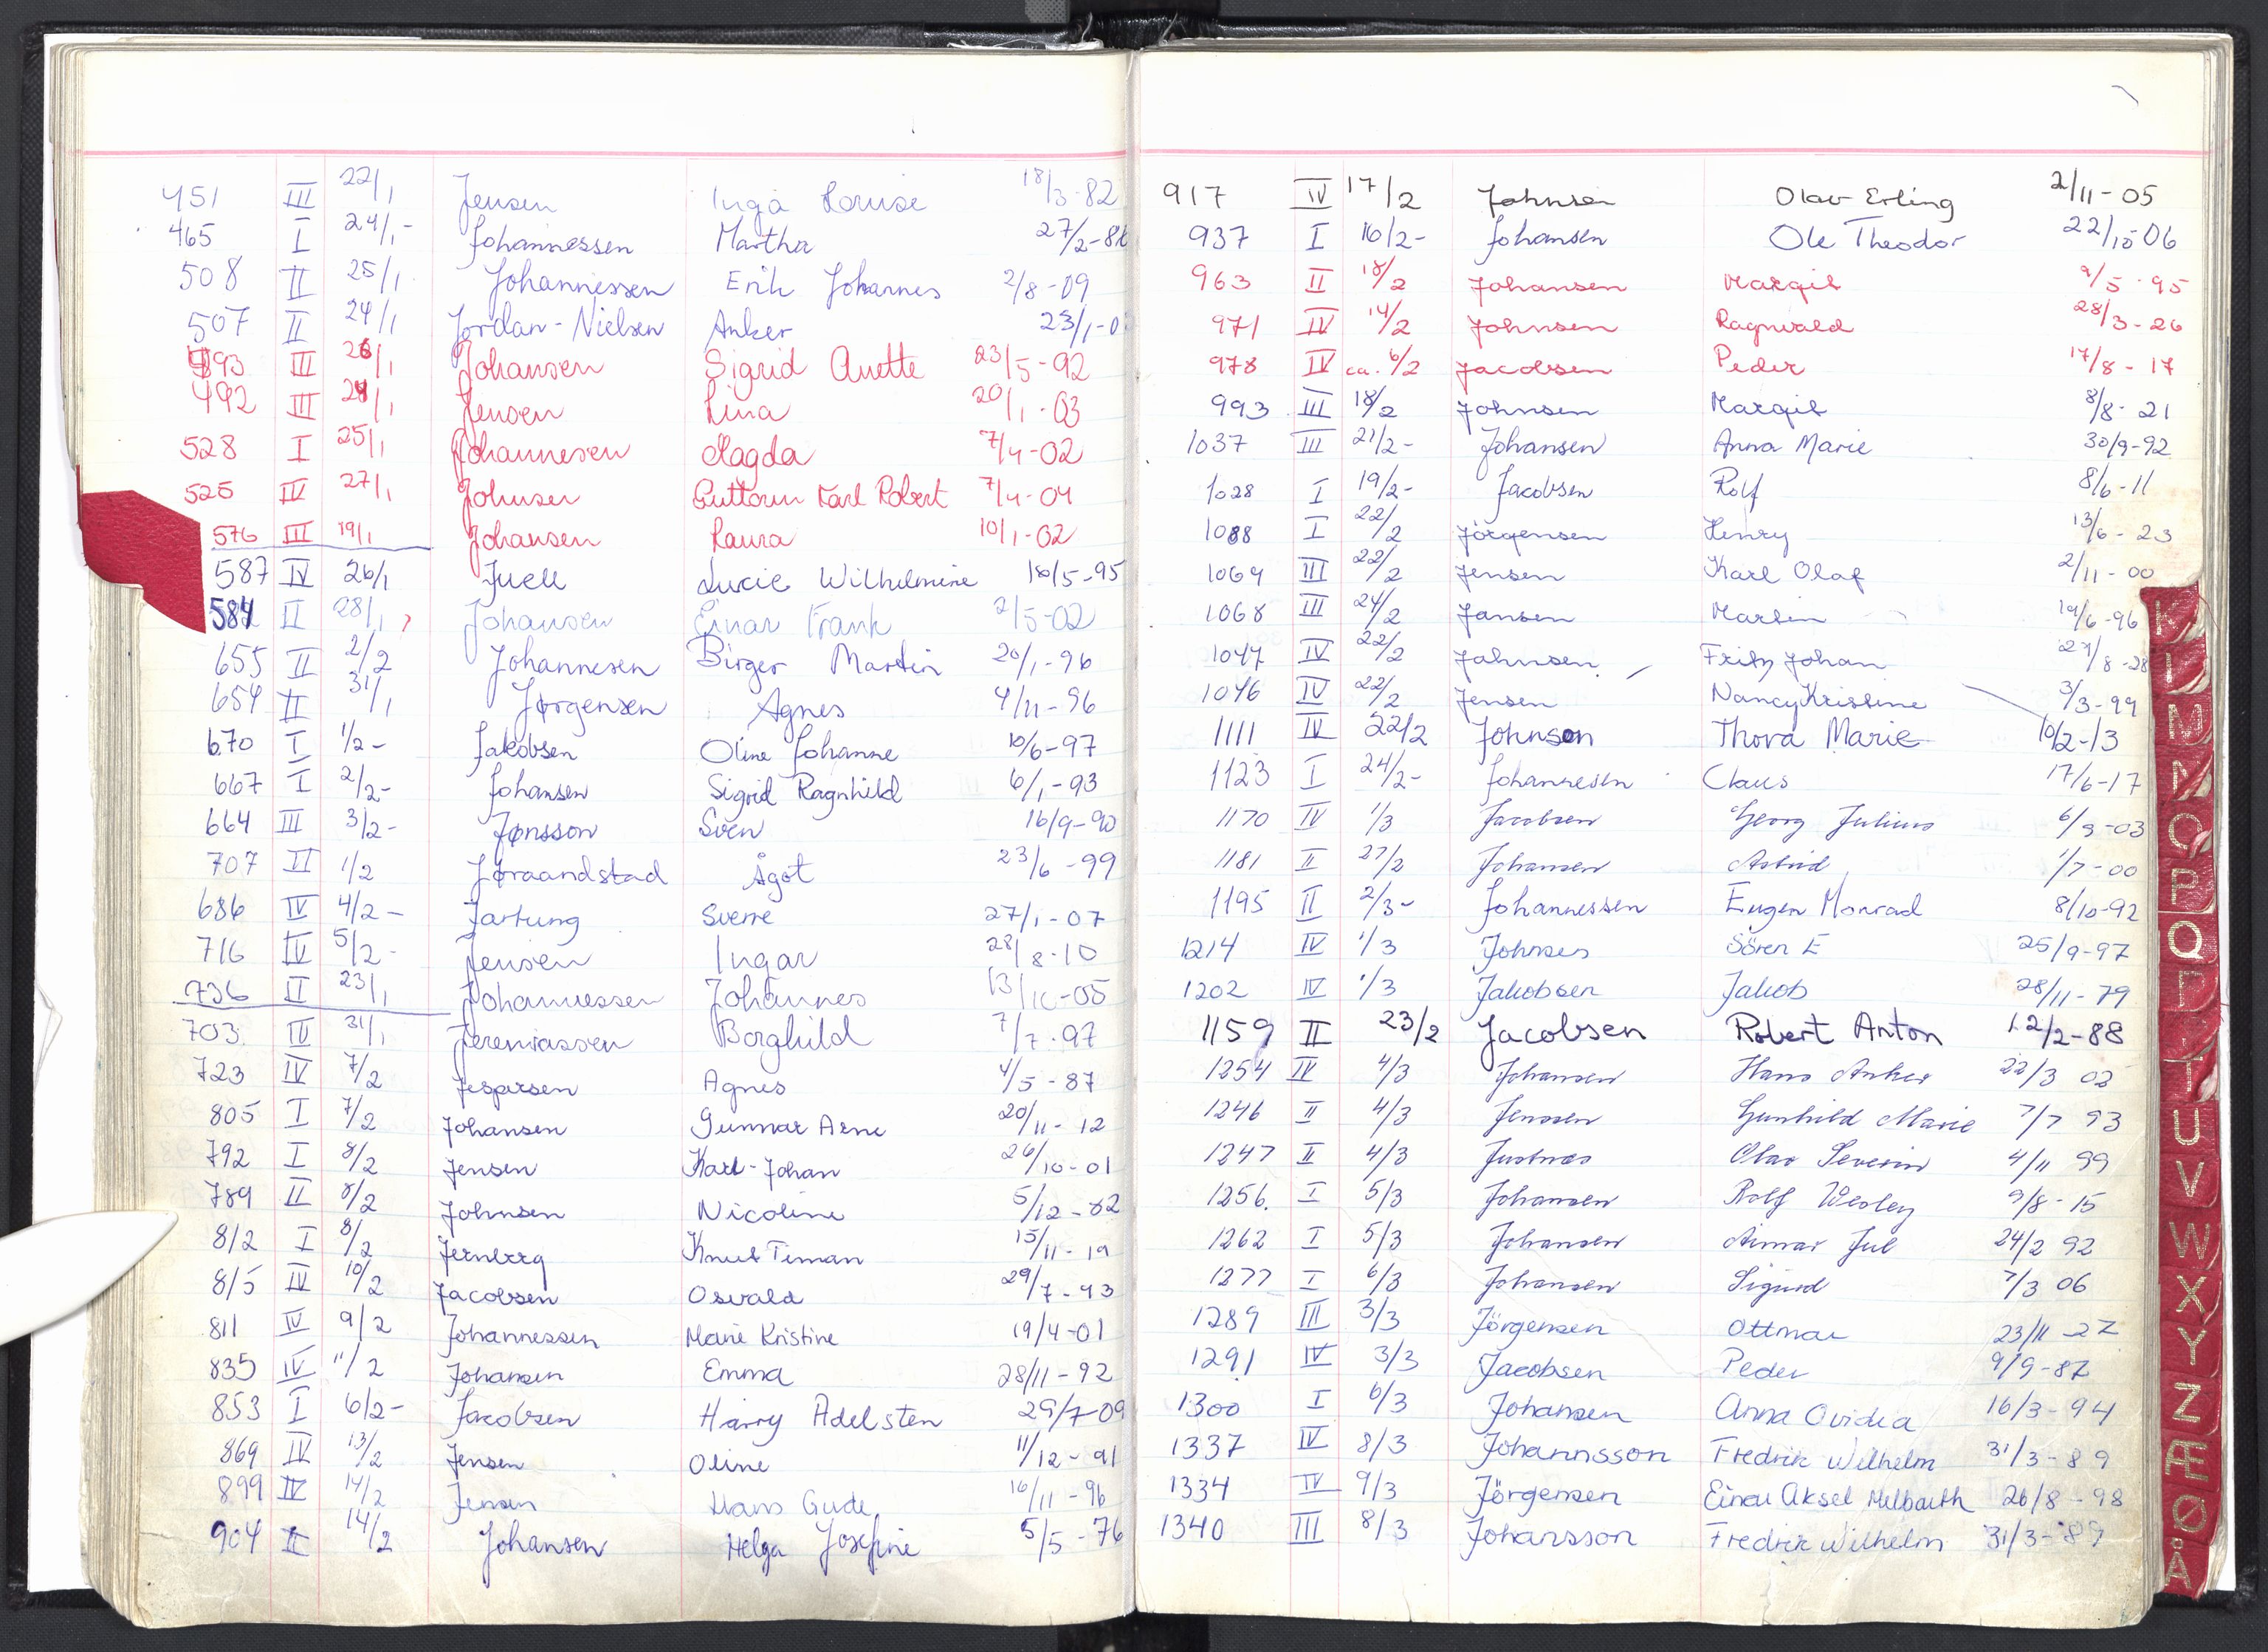 451 III 22/1 Jensen Inga Louise 18/3-82
465 I 24/1- Johannessen Martha 27/2-88
508 II 25/1 Johannessen Erik Johannes 2/8-09
507 II 24/1 Jordan-Nielsen Anker 23/1-0
493 III 26/1 Johansen Sigrid Anette 23/5-92
492 III 24/1 Jensen Lina 20/1-03
528 I 25/1 Johannesen Magda 7/4-02
525 IV 27/1 Johnsen Guttorm Karl Robert 7/4-04
576 III 19/1 Johansen Laura 10/1-02
587 IV 26/1 Juell Lucie Wilhelmine 18/5-95
584 II 28/1 Johansen Einar Frank 2/5-02
655 II 2/2 Johannesen Birger Martin 20/1-96
654 II 31/1 Jørgensen Agnes 4/11-96
670 I 1/2- Jakobsen Oline Johanne 10/6-97
667 I 2/2- Johansen Sigrid Ragnhild 6/1-93
664 III 3/2- Jønsson Sven 16/9-90
707 II 1/2 Jøraandstad Ågot 23/6-99
686 IV 4/2- Jartung Sverre 27/1-07
716 IV 5/2- Jensen Ingar 28/8-10
736 II 23/1 Johannessen Johannes 13/10-05
703 IV 31/1 Jeremiassen Borghild 7/7-97
723 IV 7/2 Jespersen Agnes 4/5-87
805 I 7/2 Johansen Gunnar Arne 20/11-12
792 I 8/2 Jensen Karl-Johan 26/10-01
789 II 8/2 Johnsen Nicoline 5/12-82
812 I 8/2 Jernberg Knut Timan 15/11-19
815 IV 10/2 Jacobsen Osvald 29/7-93
811 IV 9/2 Johannessen Marie Kristine 19/4-01
835 IV 11/2 Johansen Emma 28/11-92
853 I 6/2- Jacobsen Harry Adelsten 29/7-09
869 IV 13/2 Jensen Oline 11/12-91
899 IV 14/2 Jensen Hans Gude 16/11-96
904 II 14/2 Johansen Helga Josefine 5/5-76
917 IV 17/2 Johnsen Olav Erling 2/11-05
937 I 16/2- Johansen Ole Theodor 22/10-06
963 II 18/2 Johansen Margit 9/5-95
971 IV 14/2 Johnsen Ragnvald 28/3-26
978 IV ca. 6/2 Jacobsen Peder 17/8-17
993 III 18/2 Johnsen Margit 8/8-21
1037 III 21/2- Johansen Anna Marie 30/9-92
1028 I 19/2- Jacobsen Rolf 8/6-11
1088 I 22/2 Jörgensen Henry 13/6-23
1069 III 22/2 Jensen Karl Olaf 2/11-00
1068 III 24/2 Jansen Martin 19/6-96
1047 IV 22/2 Johnsen Fritz Johan 27/8-28
1046 IV 22/2 Jensen Nancy Kristine 3/3-99
1111 IV 22/2 Johnson Thora Marie 10/2-13
1123 I 24/2- Johannesen Claus 17/6-17
1170 IV 1/3 Jacobsen Georg Julius 6/9-03
1181 II 27/2 Johansen Astrid 1/7-00
1195 II 2/3- Johannessen Eugen Monrad 8/10-92
1214 IV 1/3 Johnsen Sören E 25/9-97
1202 IV 1/3 Jakobsen Jakob 28/11-79
1159 II 23/2 Jacobsen Robert Anton 12/2-88
1254 IV 4/3 Johansen Hans Anker 22/3 02
1246 II 4/3 Jenssen Gunhild Marie 7/7 93
1247 II 4/3 Justnæs Olav Severin 4/11 99
1256. I 5/3 Johansen Rolf Wesley 9/8-15
1262 I 5/3 Johansen Aimar Jul 24/2 92
1277 I 6/3 Johansen Sigurd 7/3 06
1289 III 3/3 Jörgensen Ottmar 23/11-27
1291 IV 3/3 Jacobsen Peder 9/9-87
1300 I 6/3 Johansen Anna Ovidia 16/3-94
1337 IV 8/3 Johannsson Fredrik Wilhelm 31/3-89
1334 IV 9/3 Jörgensen Einar Aksel Melbarth 26/8-98
1340 III 8/3 Johansson Fredrik Wilhelm 31/3-89
K
L
M
N
O
P
Q
R
T
U
V
W
X
Y
Z
Æ
Ø
Å